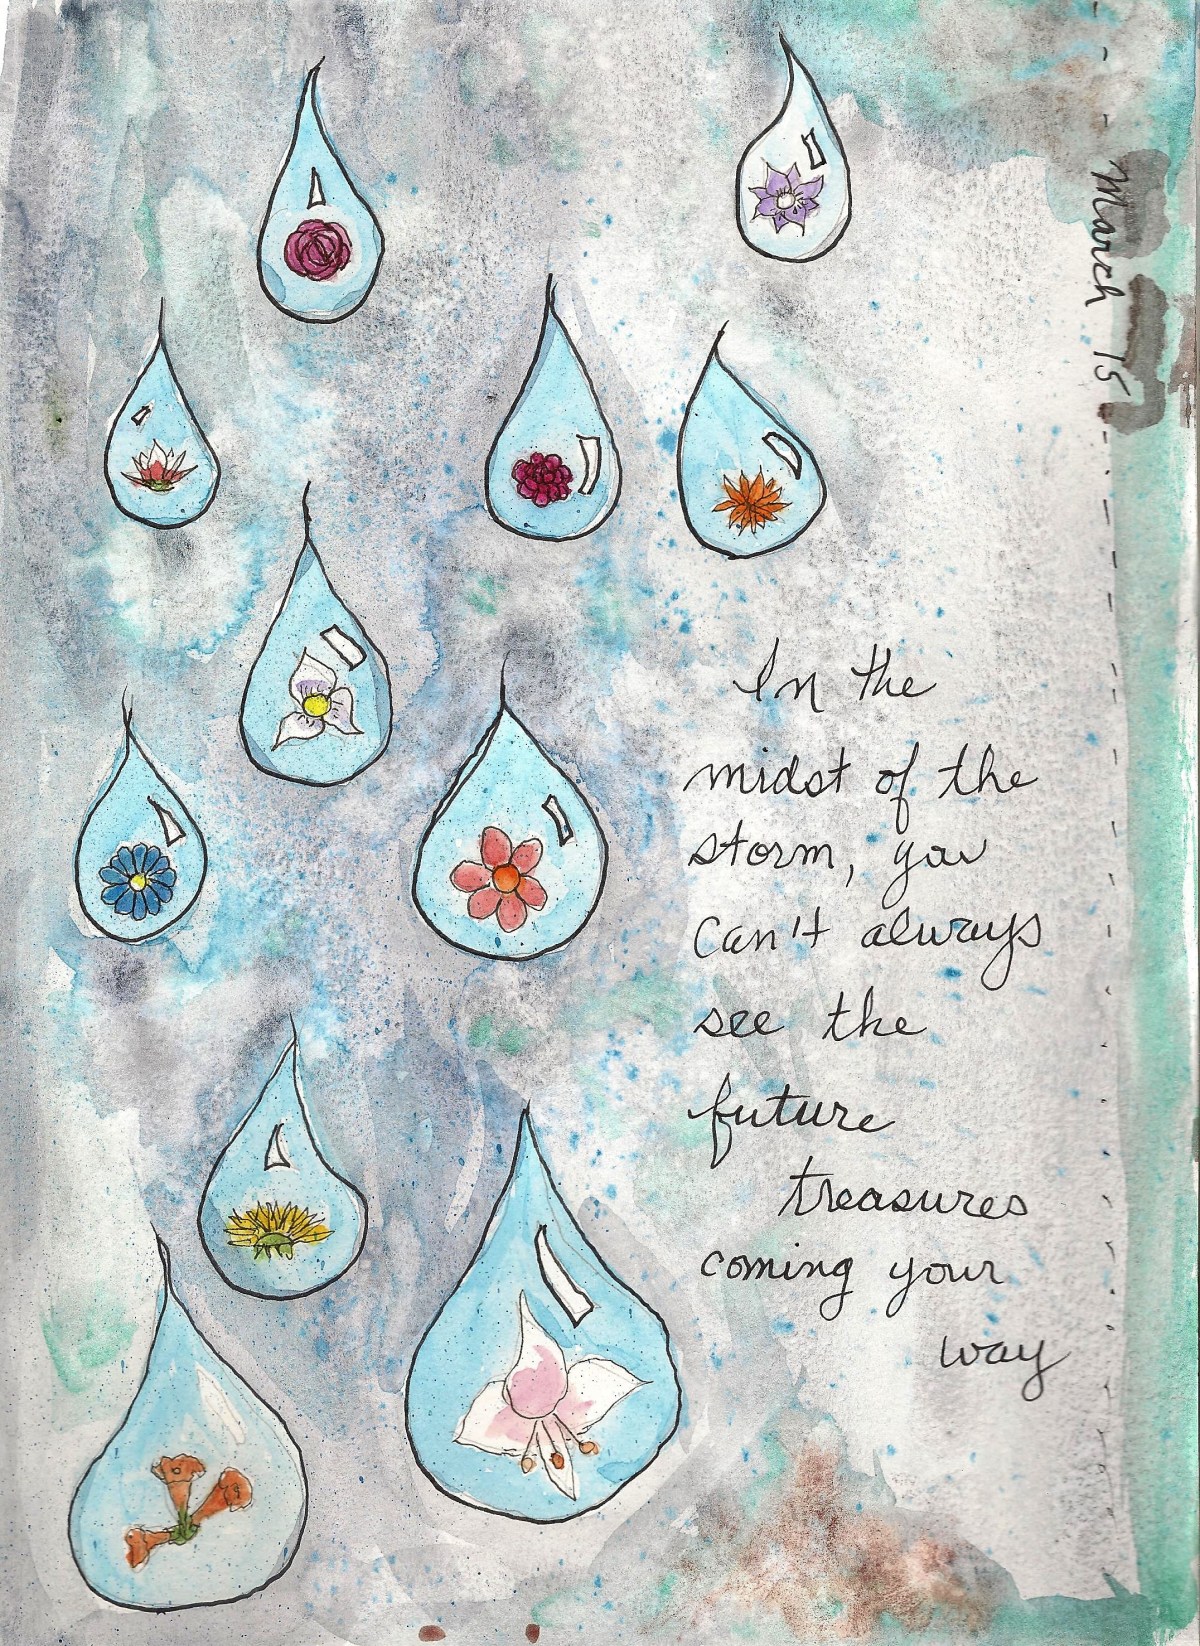 March 15
In the
midst of the
storm, you
can't always
see the
future
treasures
coming your
way